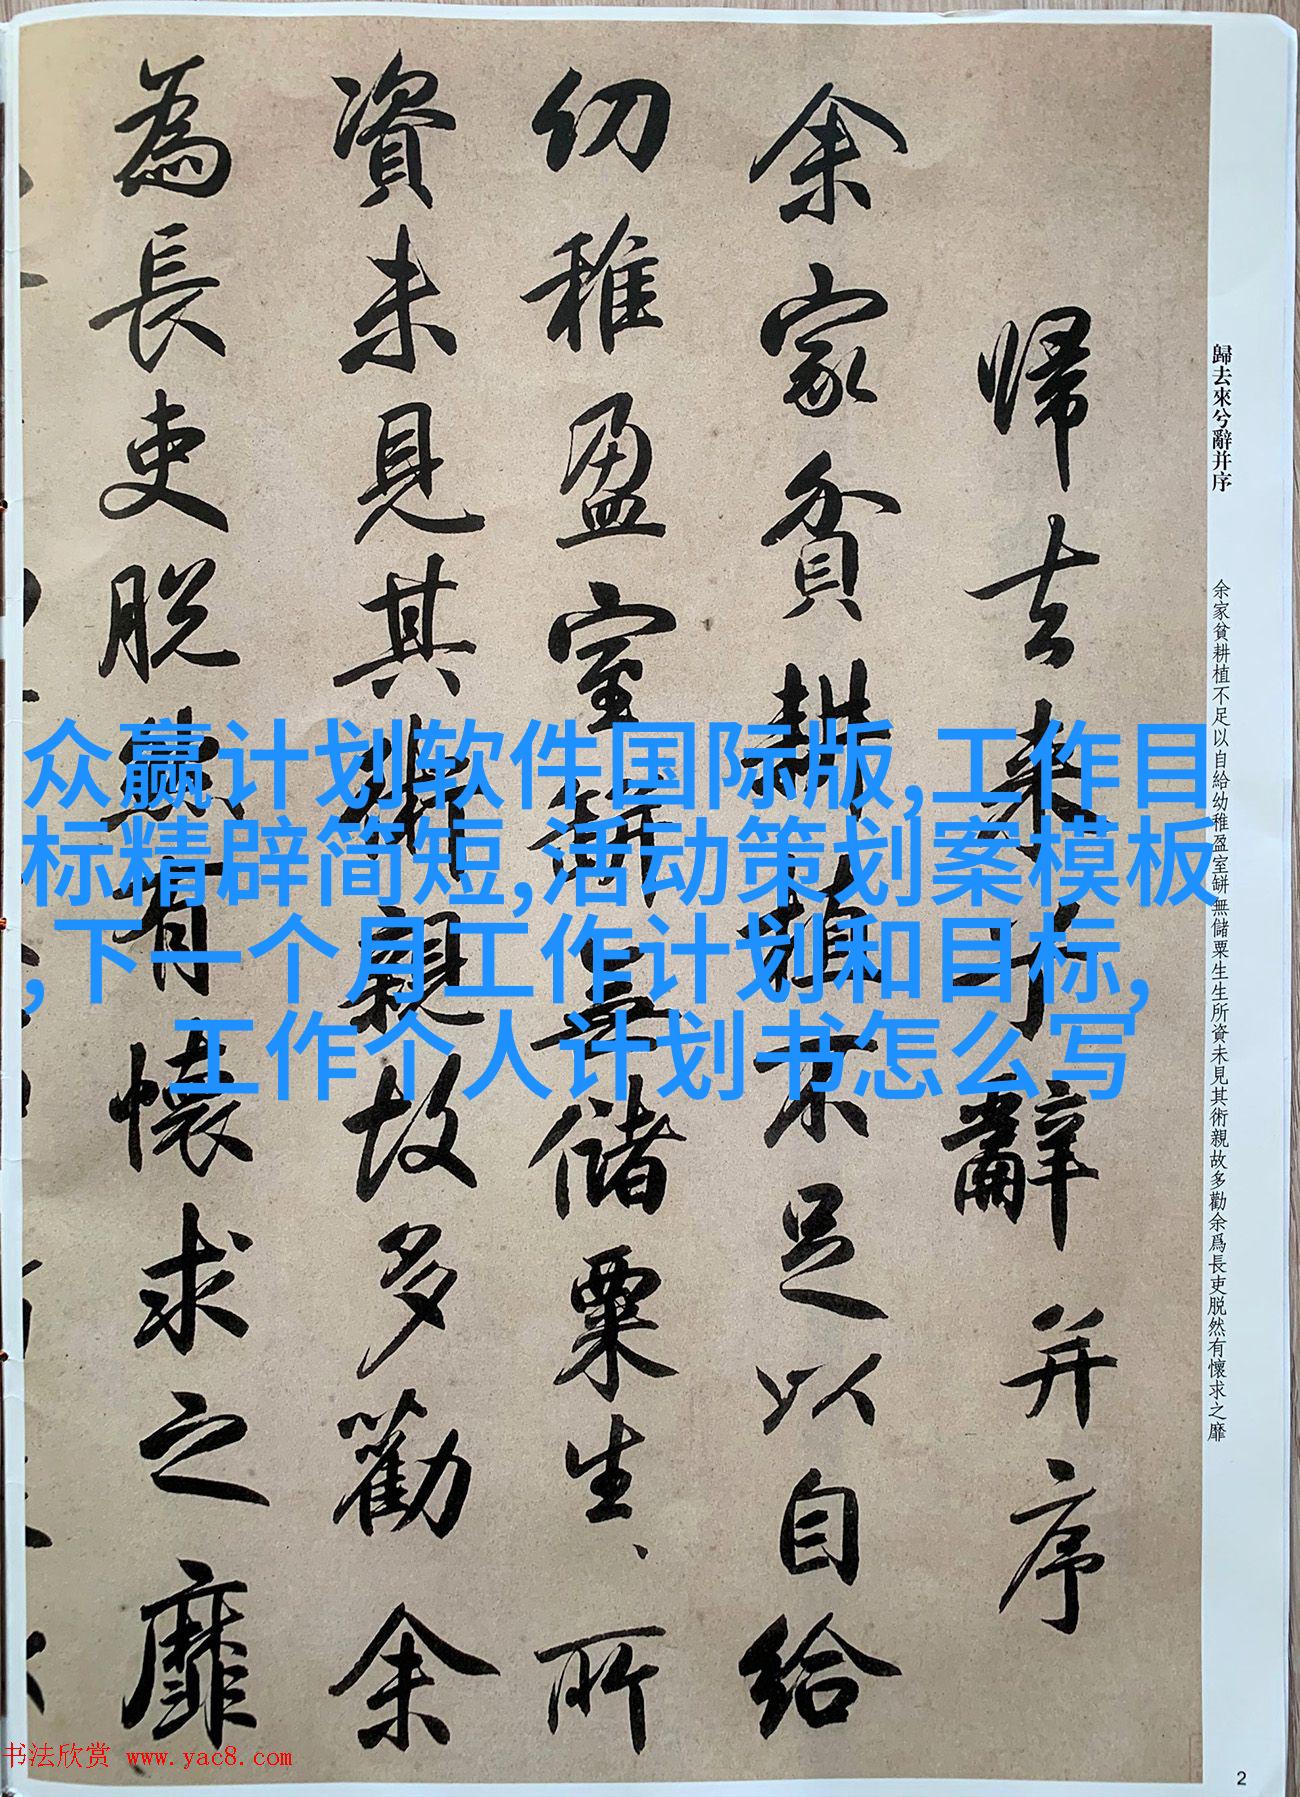 歸去來兮辭并序
余家貧耕植不足以自給幼稚盈室缾無儲粟生生所資未見其術親故多勸余爲長吏脱然有懷求之靡
歸去来兮辭并序
余家貧耕植不足以自給
幼稚盈室缾無儲粟生、所
資未見其術親故多勸余
為長吏脱然有懷求之靡
众赢计划软件国际版,工作目
标精辟简短,活动策划案模板
,下一个月工作计划和目标,
工作个人计划书怎么写
书法欣赏 www.yac8.com
2